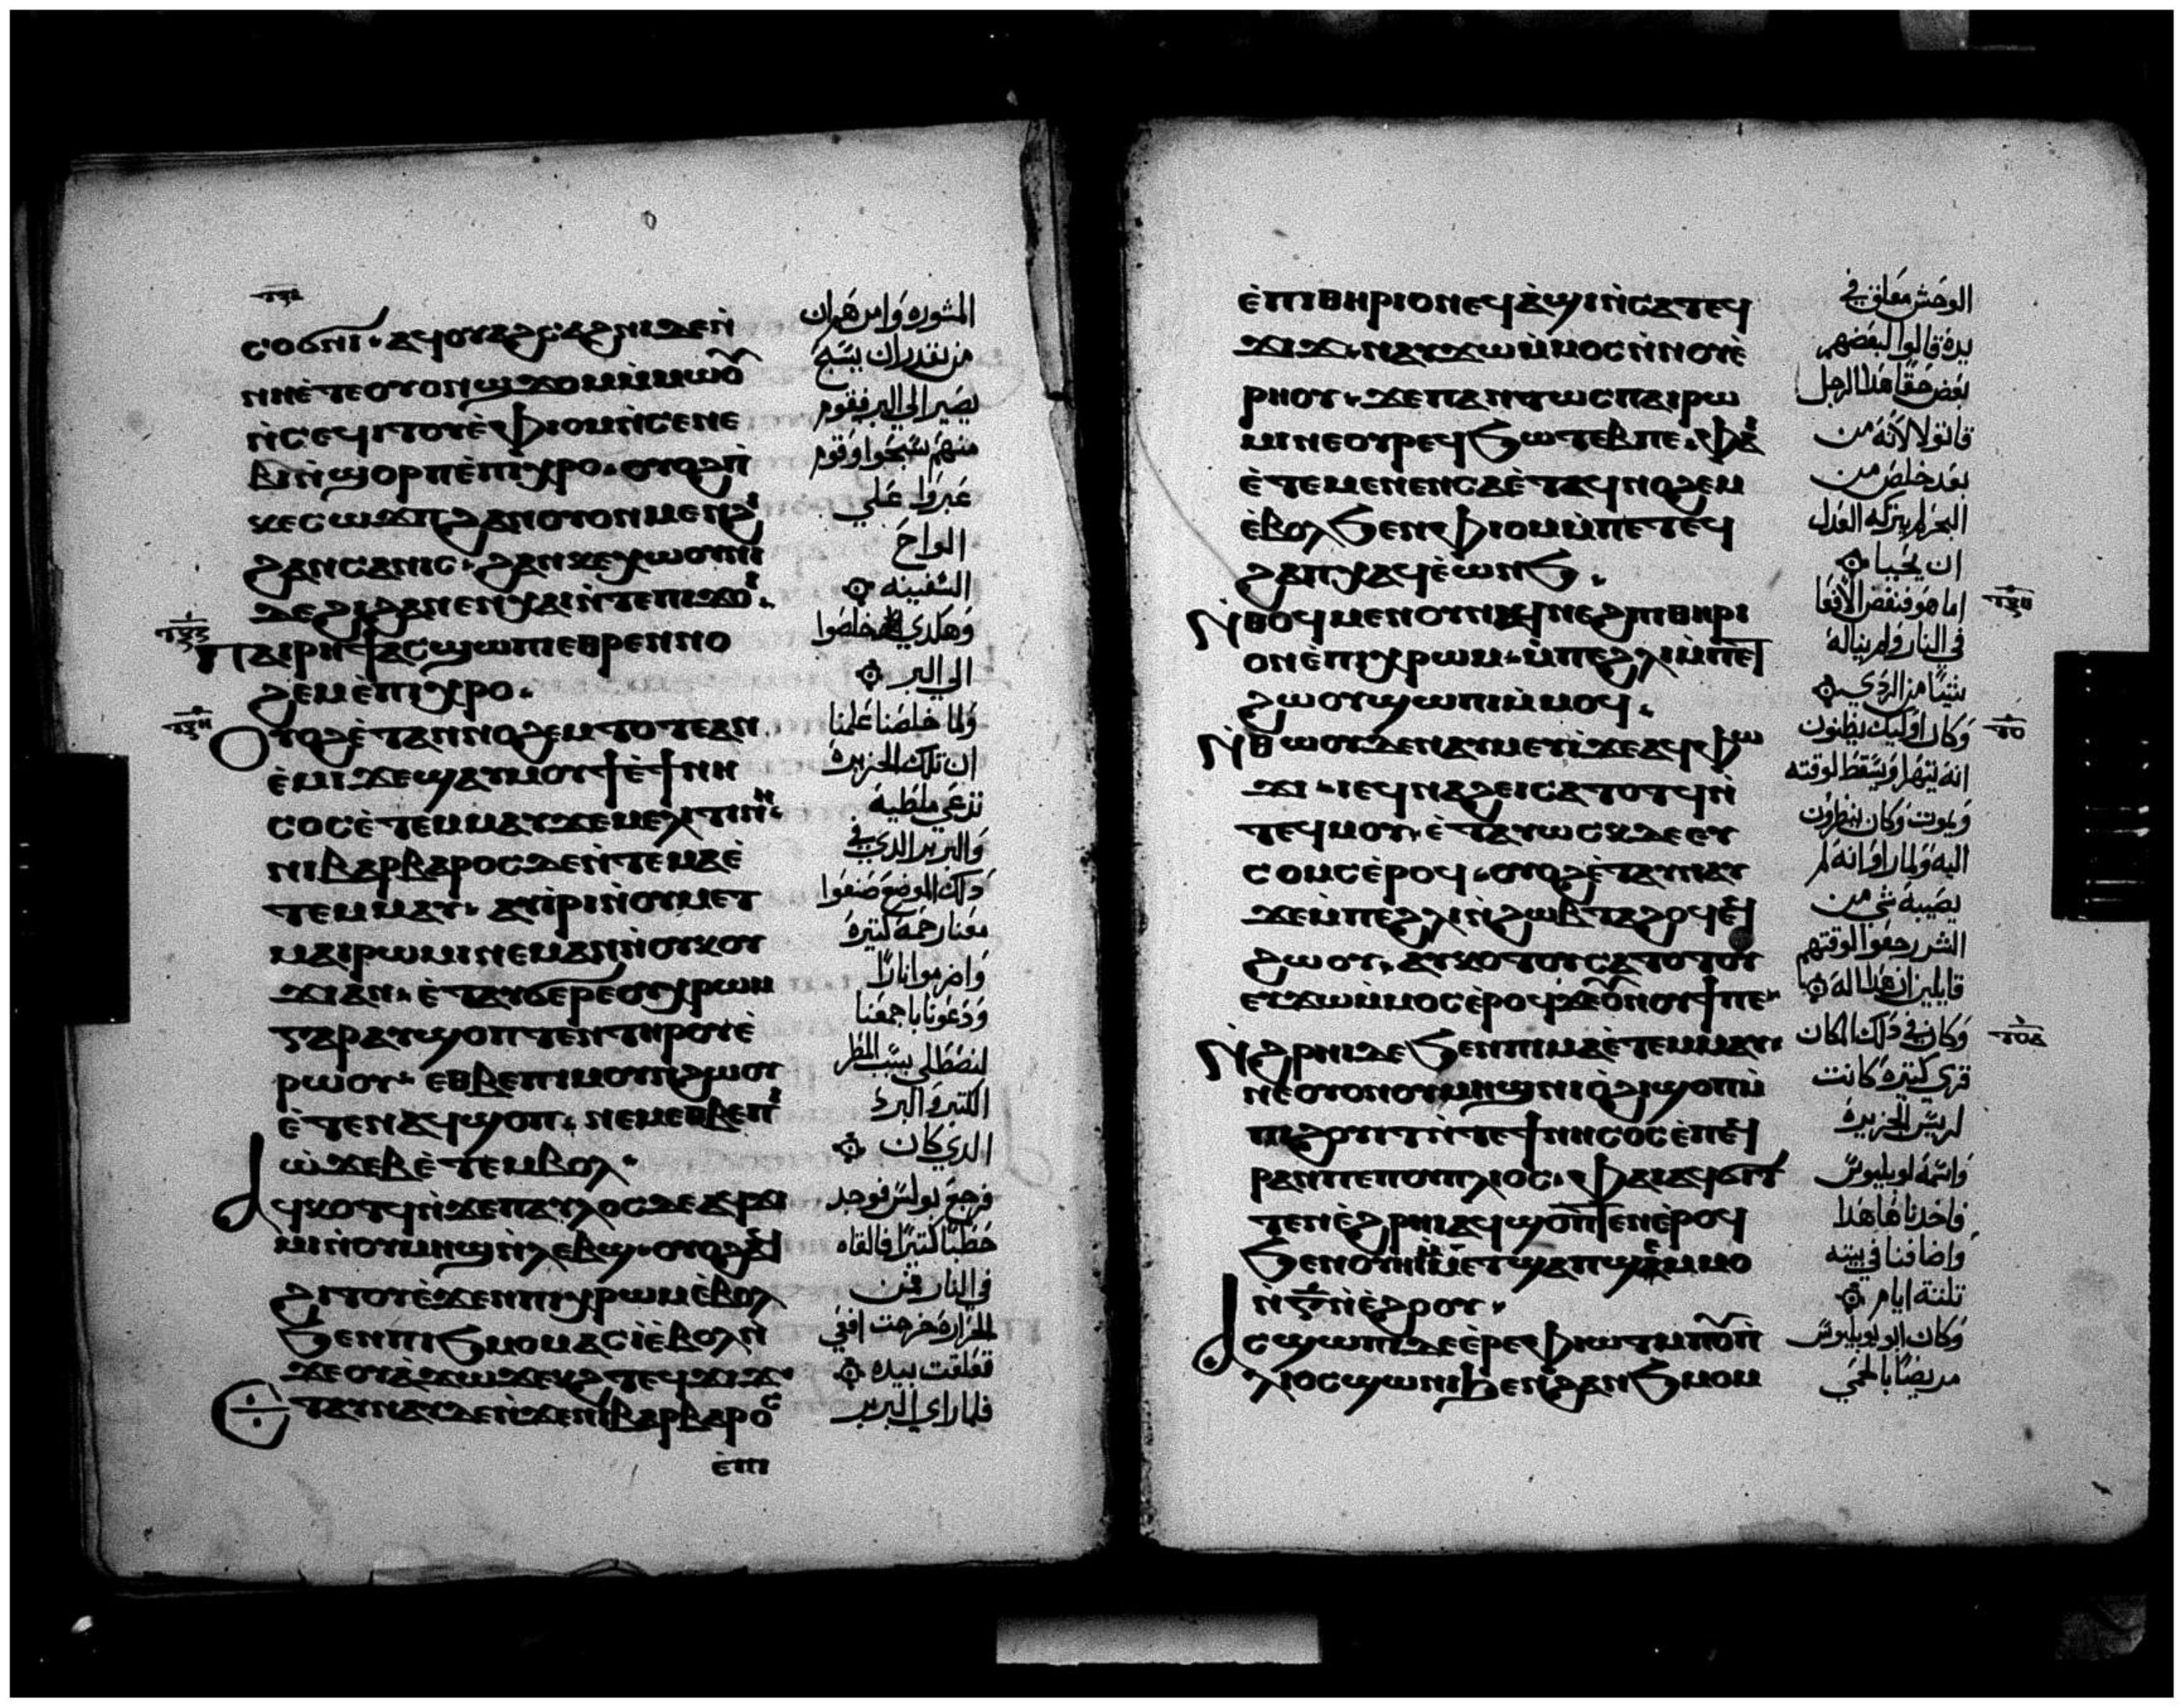 ⲥⲟϭⲛⲓ· ⲁϥⲟⲩⲁϩⲥⲁϩⲛⲓ ⲇⲉⲛ̀
ⲛⲏⲉ̀ⲧⲉⲟⲩⲟⲛϣϫⲟⲙ ⲙ̀ⲙⲱⲟ̅
ⲛ̀ⲥⲉϥⲓⲧⲟⲩ ⲉ̀ⲫⲓⲟⲙ ⲛ̀ⲥⲉⲛⲉ
ⲃⲓ ⲛ̀ϣⲟⲣⲡ ⲉ̀ⲡⲓⲭⲣⲟ· ⲟⲩⲟϩ ⲡ̀
ϩⲁⲛⲥⲁⲛⲓⲥ· ϩⲁⲛⲕⲉⲭⲱⲟⲩⲛⲓ
ⲇⲉ ϩⲓ ϩⲁⲛⲉⲛⲭⲁⲓ ⲛ̀ⲧⲉⲡⲓϫⲟⲓ·
ⲡⲁⲓⲣⲏϯ ⲁⲥϣⲱⲡⲓ ⲉⲑⲣⲉⲛⲛⲟ
ϩⲉⲙ ⲉ̀ⲡⲓⲭⲣⲟ·
ⲟⲩⲟϩ ⲉ̀ⲧⲁⲛⲛⲟϩⲉⲙ ⲧⲟⲧⲉ ⲁⲛ
ⲉ̀ⲙⲓ ϫⲉ ϣⲁⲩⲙⲟⲩϯ ⲉ̀ϯⲛⲏ
ⲥⲟⲥ ⲉ̀ⲧⲉⲙⲙⲁⲩ ϫⲉ ⲙⲉⲗⲓⲧⲓⲛⲏ·
ⲛⲓⲃⲁⲣⲃⲁⲣⲟⲥ ⲇⲉ ⲛ̀ⲧⲉⲙⲁ ⲉ̀
ⲧⲉⲙⲙⲁⲩ· ⲁⲩⲓ̀ⲣⲓ ⲛ̀ⲟⲩⲙⲉⲧ
ⲙⲁⲓⲣⲱⲙⲓ ⲛⲉⲙⲁⲛ ⲛ̀ⲟⲩⲕⲟⲩ
ϫⲓ ⲁⲛ· ⲉ̀ⲧⲁⲩϭⲉⲣⲉ ⲟⲩⲭⲣⲱⲙ
ⲅⲁⲣ ⲁⲩϣⲟⲡⲧⲉⲛ ⲧⲏⲣⲟⲩ ⲉ̀
ⲣⲱⲟⲩ· ⲉⲑⲃⲉ ⲡⲓⲙⲟⲩⲛϩⲱⲟⲩ
ⲉ̀ⲧⲉⲛⲁϥϣⲟⲡ· ⲛⲉⲙ ⲉⲑⲃⲉ ⲡⲓ
ⲱ̀ϫⲉⲃ ⲉ̀ⲧⲉⲙⲃⲟⲗ·
ⲁϥⲕⲟⲧϥ ⲛ̀ϫⲉ ⲡⲁⲩⲗⲟⲥ ⲇⲉ ⲁϥϫⲓ
ⲙⲓ ⲛ̀ⲟⲩⲙⲏϣ ⲛ̀ⲗⲉⲃϣ· ⲟⲩⲟϩ ⲉ̀ϥ
ϩⲓⲧⲟⲩ ⲉ̀ϫⲉⲛ ⲡⲓⲭⲣⲱⲙ ⲉ̀ⲃⲟⲗ
ϧⲉⲛ ⲡⲓϧⲙⲟⲙ ⲁⲥⲓ̀ ⲉ̀ⲃⲟⲗ ⲛ̀
ϫⲉ ⲟⲩⲁ̀ϫⲱ ⲁⲥⲁϩ ⲧⲉϥϫⲓϫ·
ⲉ̀ⲧⲁⲩⲛⲁⲩ ⲇⲉ ⲛ̀ϫⲉ ⲛⲓⲃⲁⲣⲃⲁⲣⲟⲥ
ⲉ̀ⲡⲓ
المشوره وامر هو ان
من يقدر ان يسبح
يصير الي البر فقوم
منهم سبحوا وقوم
عبروا علي
الواح
السفينه
وهكذي خلصوا
الي البر
ولما خلصنا علمنا
ان تلك الجزيرة
تدعي ملطيه
والبربر الدي في
ذلك الموضع صنعوا
معنا رحمه كتيرة
واضرموا نارًا
ودعونا باجمعنا
لنصطلي بسبب المطر
الكتير والبرد
الدي كان
فرجع بولس فوجد
حطبًا كتيرًا فالقاه
في النار فمن
الحرارة خرجت افعي
فعلقت بيده
فلما راي البربر
ⲉ̀ⲡⲓⲑⲏⲣⲓⲟⲛ ⲉϥⲁ̀ϣⲓ ⲛ̀ⲥⲁ ⲧⲉϥ
ϫⲓϫ· ⲛⲁⲩϫⲱ ⲙ̀ⲙⲟⲥ ⲛ̀ⲛⲟⲩⲉ̀
ⲣⲏⲟⲩ· ϫⲉ ⲡⲁⲛⲧⲱⲥ ⲡⲁⲓⲣⲱ
ⲙⲓ ⲛⲉ ⲟⲩⲣⲉϥϧⲱⲧⲉⲃ ⲡⲉ· ⲫⲁⲓ
ⲉ̀ⲧⲉ ⲙⲉⲛⲉⲛⲥⲁ ⲉ̀ⲧⲁϥⲛⲟϩⲉⲙ
ⲉ̀ⲃⲟⲗ ϧⲉⲛ ⲫⲓⲟⲙ ⲙ̀ⲡⲉ ⲧⲉϥ
ϩⲁⲡ ⲭⲁϥ ⲉ̀ⲱⲛϧ·
ⲛ̀ⲑⲟϥ ⲙⲉⲛ ⲟⲩⲛ ⲁϥⲛⲉϩ ⲡⲓⲑⲏⲣⲓ
ⲟⲛ ⲉ̀ⲡⲓⲭⲣⲱⲙ· ⲙ̀ⲡⲉ ϩⲗⲓ ⲙ̀ⲡⲉⲧ
ϩⲱⲟⲩ ϣⲱⲡⲓ ⲙ̀ⲙⲟϥ·
ⲛ̀ⲑⲱⲟⲩ ⲇⲉ ⲛⲁⲩⲙⲉⲩⲓ ϫⲉ ⲁϥⲫⲱ
ϫⲓ· ⲓⲉ ϥⲛⲁϩⲉⲓ ⲥⲁⲧⲟⲧϥ ⲛ̀
ⲧⲉϥⲙⲟⲩ· ⲉ̀ⲧⲁⲩⲱⲥⲕ ⲇⲉ ⲉⲩ
ⲥⲟⲙⲥ ⲉ̀ⲣⲟϥ· ⲟⲩⲟϩ ⲉ̀ⲧⲁⲩⲛⲁⲩ
ϫⲉ ⲙ̀ⲡⲉ ϩⲗⲓ ⲛ̀ϩⲱⲃ ⲧⲁϩⲟϥ ⲉϥ
ϩⲱⲟⲩ· ⲁⲩⲕⲟⲧⲟⲩ ⲥⲁⲧⲟⲧⲟⲩ
ⲉⲩϫⲱ ⲙ̀ⲙⲟⲥ ⲉ̀ⲣⲟϥ ϫⲉ ⲟⲩⲛⲟⲩϯ ⲡⲉ·
ⲛ̀ϩⲣⲏⲓ ⲇⲉ ϧⲉⲛ ⲡⲓⲙⲁ ⲉ̀ⲧⲉⲙⲙⲁⲩ·
ⲛⲉ ⲟⲩⲟⲛ ⲟⲩⲙⲏϣ ⲛ̀ⲓⲟϩⲓ ϣⲟⲡ ⲙ̀
ⲡⲓϩⲟⲩⲓⲧ ⲛ̀ⲧⲉ ϯⲛⲏⲥⲟⲥ ⲉ̀ⲡⲉϥ
ⲣⲁⲛ ⲡⲉ ⲡⲟⲩⲡⲗⲓⲟⲥ· ⲫⲁⲓ ⲁϥϭⲓ
ⲧⲉⲛ ⲉ̀ϩⲣⲏⲓ ⲁϥϣⲟⲡⲧⲉⲛ ⲉ̀ⲣⲟϥ
ⲛ̀ⲅ̅ ⲛ̀ⲉ̀ϩⲟⲟⲩ·
ⲁⲥϣⲱⲡⲓ ⲇⲉ ⲉ̀ⲣⲉ ⲫⲓⲱⲧ ⲙ̀ⲡⲟⲡ
ⲗⲓⲟⲥ ϣⲱⲛⲓ ϧⲉⲛ ϩⲁⲛϧⲙⲟⲙ
الوحش معلق في
يده قالوا لبعضهم
بعض حقًا هذا الرجل
قاتولا لانه من
بعد خلص من
البحر لم يتركه العدل
ان يحيا
اما هو فنفض الافعا
في النار ولم يناله
شيًا من الردي
وكان اوليك يظنون
انه يتهرا ويسقط لوقته
ويموت وكان ينظرون
اليه ولما راوا انه لم
يصيبه شي من
الشر رجعوا لوقتهم
قايلين ان هذا اله
وكان في ذلك المكان
قري كتيرة كانت
لريس الجزيرة
واسمه لوبليوس
فاخدنا هاهدا
واضافنا في بيته
تلتة ايام
وكان ابو بوبليوس
مريضًا بالحمي